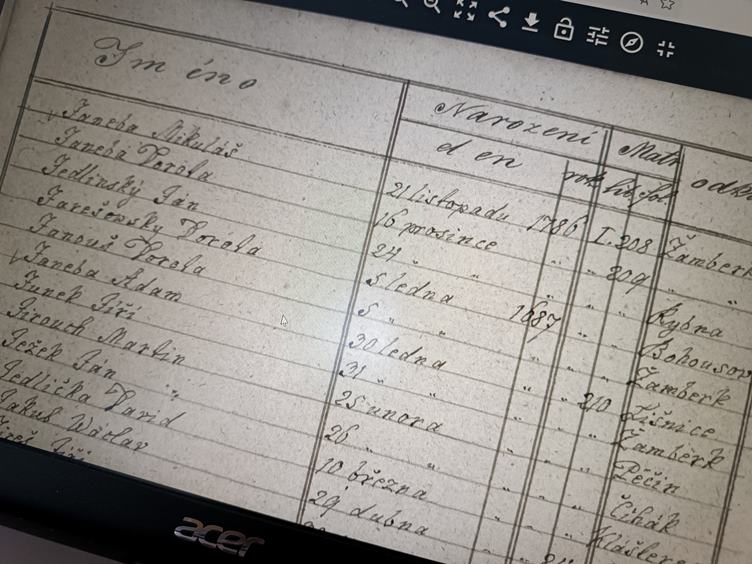 Jméno Narození Matr
den rok lib. fol. odk
Janeba Mikuláš 21 listopadu 1786 I. 208 Žamberk
Janeba Dorota 16 prosince " " 209 " "
Jedlinský Ján 24 " " " " " Rybna
Jarešovsky Dorota 5 ledna 1687 " " Bohousov
Janouš Dorota 5 " " " " " Žamberk
Janeba Adam 30 ledna " " 210 Lišnice
Junek Jiří 31 " " " " " Žamberk
Jirouch Martin 25 unora " " " Pěčin
Ježek Ján 26 " " " " " Čihák
Jedlička David 10 března " " " Klášter
Jakub Wáclav 29 dubna " "
Jiří
acer